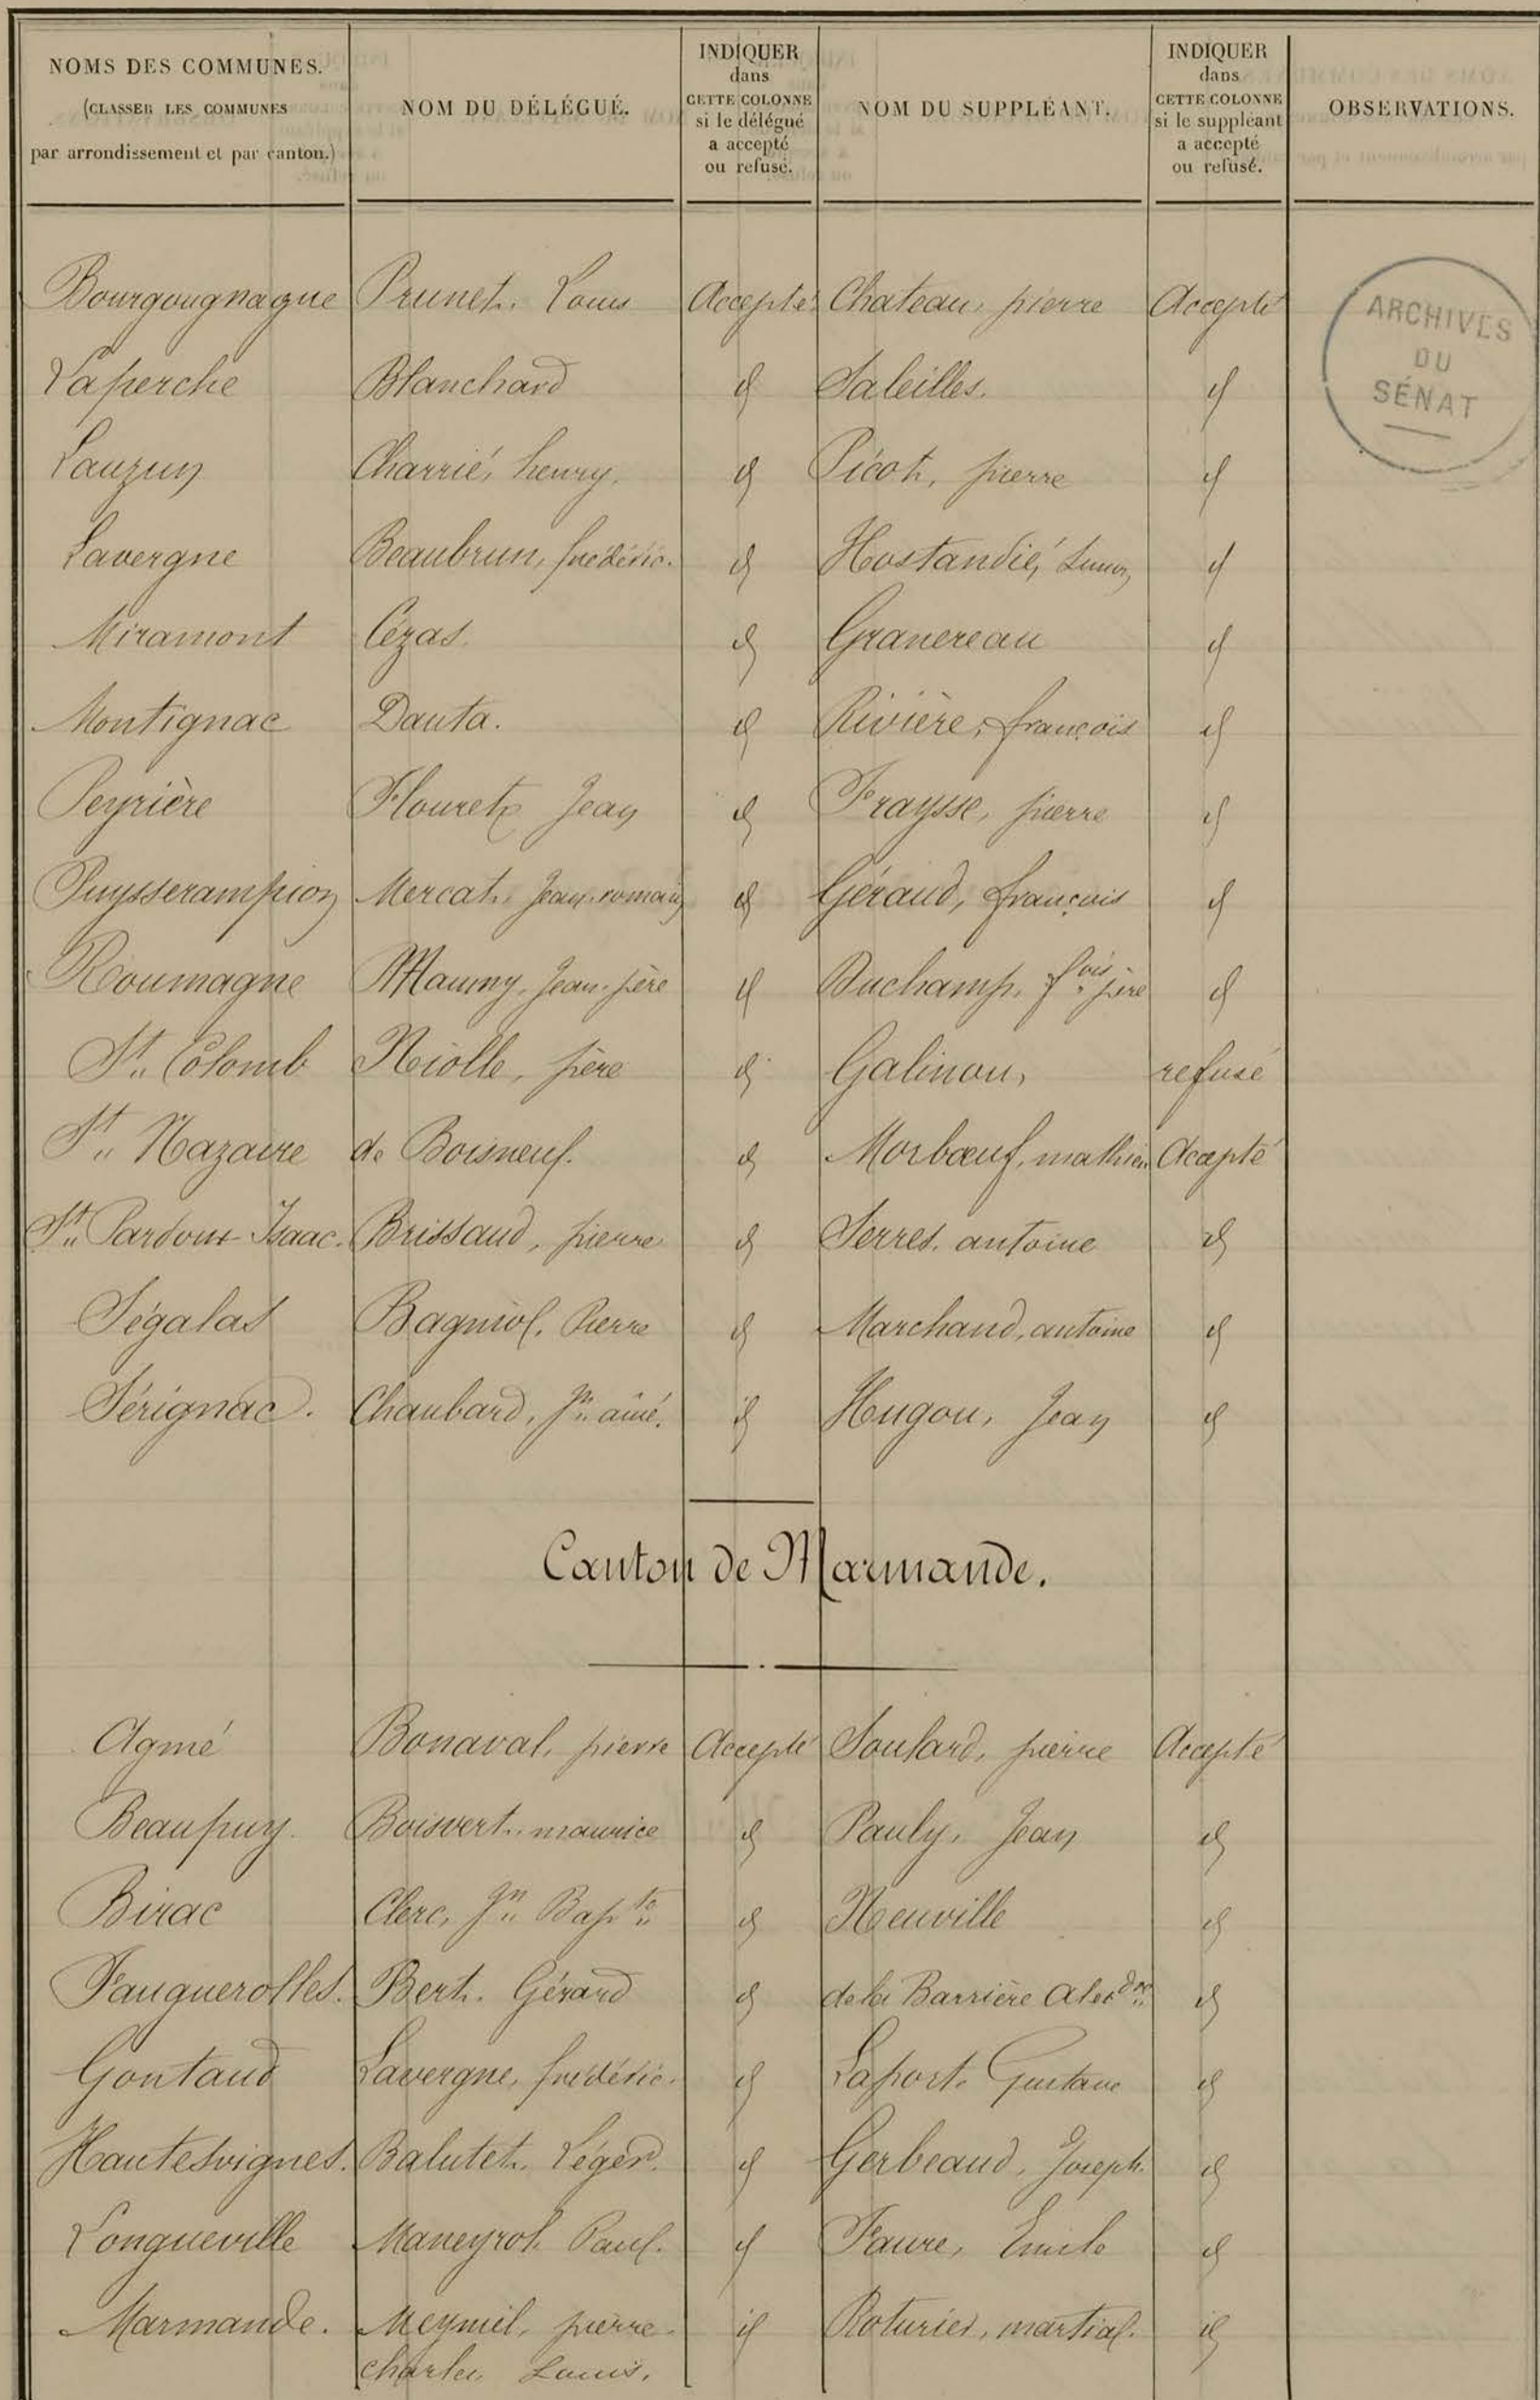 NOMS DES COMMUNES.
(CLASSER LES COMMUNES
par arrondissement et par canton.)
NOM DU DÉLÉGUÉ.
INDIQUER
dans
CETTE COLONNE
si le délégué
a accepté
ou refusé.
NOM DU SUPPLÉANT.
INDIQUER
dans
CETTE COLONNE
si le suppléant
a accepté
ou refusé.
OBSERVATIONS.
ARCHIVES
DU
SÉNAT
Bourgougnague Prunet, Louis Accepté Chateau, pierre Accepté
Laperche Blanchard id Saleilles. id
Lauzun Charrié, henry. id Picot, pierre id
Lavergne Beaubrun, frédéric. id Hostandié, id
Miramont Cézas. id Granereau id
Montignac Dauta. id Rivière, françois id
Peyrière Flouret, Jean id Fraysse, pierre id
Puysserampion Mercat, Jean romain id Géraud, françois id
Roumagne Maumy, Jean père id Duchamp, fois père id
St Colomb Niolle, père id Galinou, refusé
St Nazaire de Boisneuf. id Morbœuf, mathieu Accepté
St Pardoux Isaac. Brissaud, pierre id Serres, antoine id
Ségalas Bagniol, Pierre id Marchand, antoine id
Sérignac. Chaubard, Jn ainé. id Hugou, Jean id
Canton de Marmande.
Agmé Bonaval, pierre Accepté Soulard, pierre Accepté
Beaupuy. Boisvert, maurice id Pauly, Jean id
Birac Clerc, Jn Bapte id Neuville id
Fauguerolles. Bert, Gérard id de la Barrière Alexdre id
Gontaud Lavergne, frédéric. id Laport, Gustave id
Hautesvignes. Balutet, Léger. id Gerbeaud, Joseph. id
Longueville Maneyrol, Paul. id Faure, Emile id
Marmande. Meyniel, pierre id Roturier, martial. id
charles Louis.